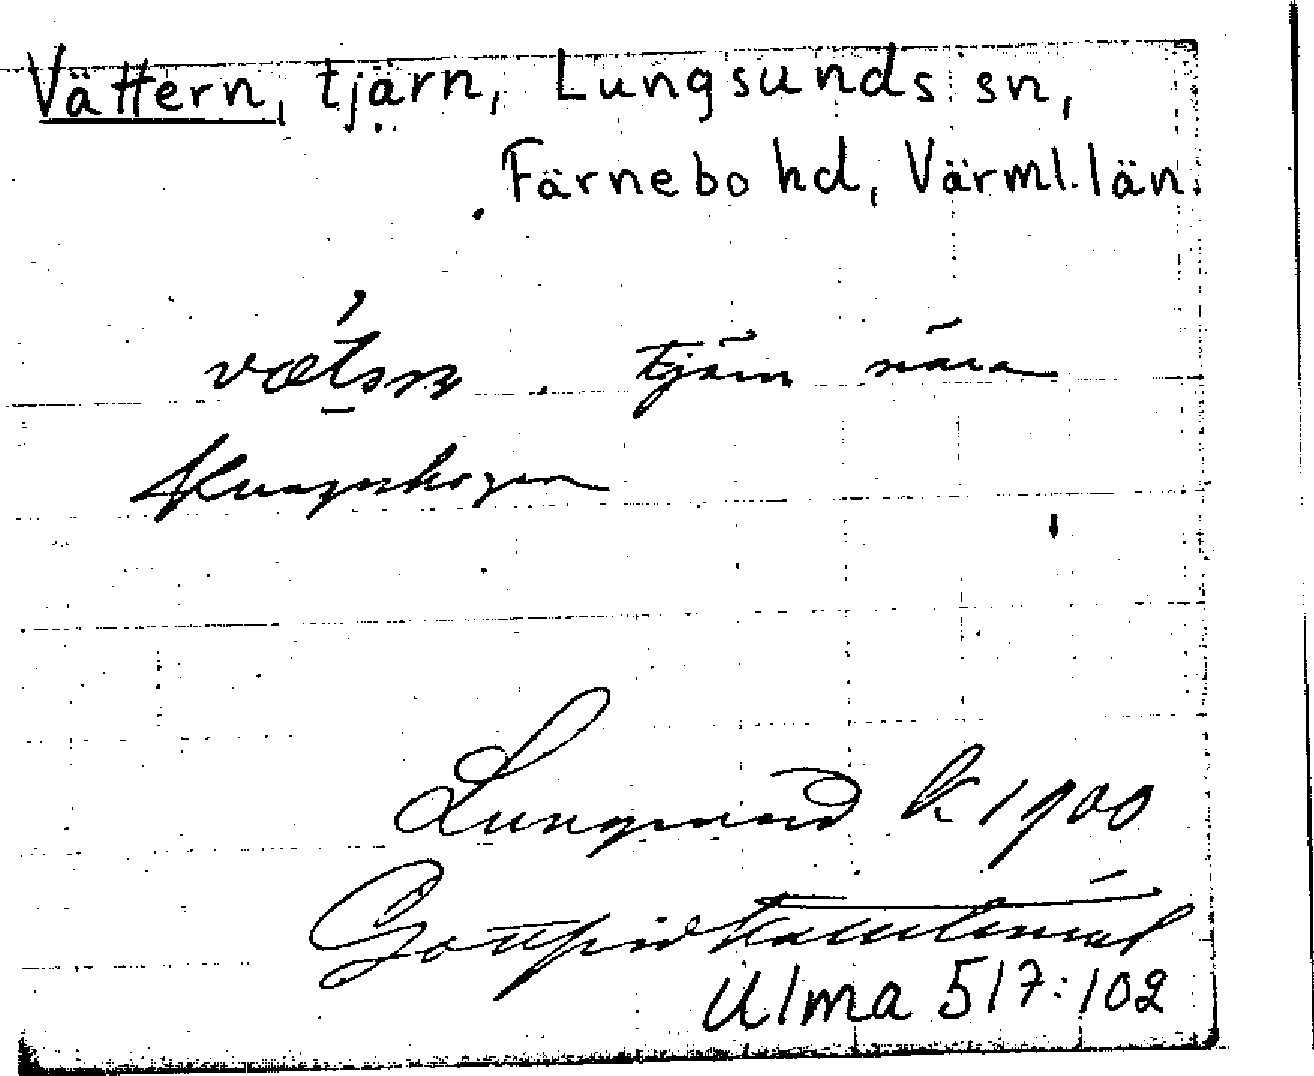 Vättern, tjärn, Lungsunds sn,
Färnebo hd, Värml. län.
tjärn nära
Kungsskogen
Lungsund K 1900
Gottfrid Kallstenius
Ulma 517:102